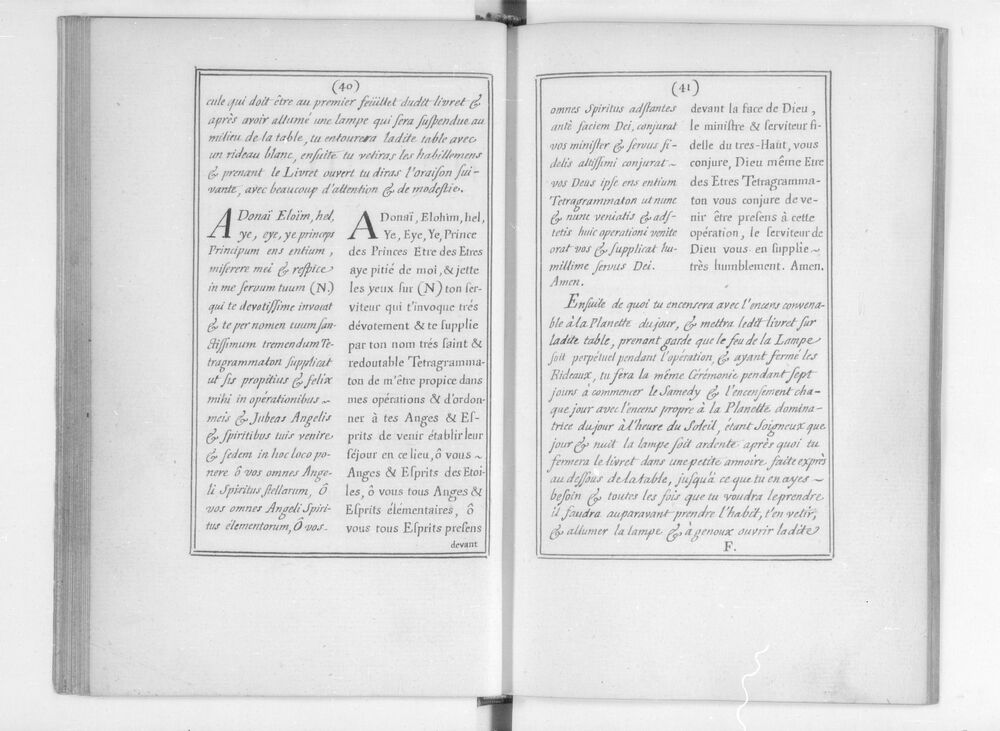 (40)
cule qui doit être au premier feüillet dudit livret &
après avoir allumé une lampe qui sera suspendue au
milieu de la table, tu entourera ladite table avec
un rideau blanc, ensuite tu vetiras les habillemens
& prenant le Livret ouvert tu diras l'oraison sui-
vante, avec beaucoup d'attention & de modestie.
ADonaï Eloïm, hel,
ye, eye, ye princeps
Principum ens entium,
miserere mei & respice
in me servum tuum (N.)
qui te devotissime invocat
& te per nomen tuum san-
ctissimum tremendum Te-
tragrammaton supplicat
ut sis propitius & felix
mihi in opérationibus
meis & Jubeas Angelis
& spiritibus tuis venire
& sedem in hoc loco po-
nere ô vos omnes Ange-
li Spiritus stellarum, Ô
vos omnes Angeli Spiri-
tus elementorum, Ô vos-
ADonaï, Elohim, hel,
Ye, Eye, Ye, Prince
des Princes Etre des Etres
aye pitié de moi, & jette
les yeux sur (N) ton ser-
viteur qui t'invoque trés
dévotement & te supplie
par ton nom trés saint &
redoutable Tetragramma-
ton de m'être propice dans
mes opérations & d'ordon-
ner à tes Anges & Es-
prits de venir établir leur
séjour en ce lieu, ô vous ~
Anges & Esprits des Etoi-
les, ô vous tous Anges &
Esprits élémentaires, ô
vous tous Esprits presens
devant
(41)
omnes Spiritus adstantes
antè faciem Dei, conjurat
vos minister & servus fi-
delis altissimi conjurat ~
vos Deus ipse ens entium
Tetragrammaton ut nunc
& nunc veniatis & ads-
tetis huic operationi venite
orat vos & supplicat hu-
millime servus Dei.
Amen.
devant la face de Dieu,
le ministre & serviteur fi-
delle du tres-Haut, vous
conjure, Dieu même Etre
des Etres Tetragramma-
ton vous conjure de ve-
nir être presens à cette
opération, le serviteur de
Dieu vous en supplie ~
très humblement. Amen.
Ensuite de quoi tu encensera avec l'encens convena-
ble à la Planette du jour, & mettra ledit livret sur
ladite table, prenant garde que le feu de la Lampe
soit perpétuel pendant l'opération & ayant fermé les
Rideaux, tu fera la même Cérémonie pendant sept
jours à commencer le Samedy & l'encensement cha-
que jour avec l'encens propre à la Planette domina-
trice du jour à l'heure du Soleil, étant Soigneux que
jour & nuit la lampe soit ardente après quoi tu
fermera le livret dans une petite armoire faite exprès
au dessous de la table, jusqu'à ce que tu en ayes ~
besoin & toutes les fois que tu voudra le prendre
il faudra auparavant prendre l'habit, t'en vetir,
& allumer la lampe & à genoux ouvrir ladite
F.